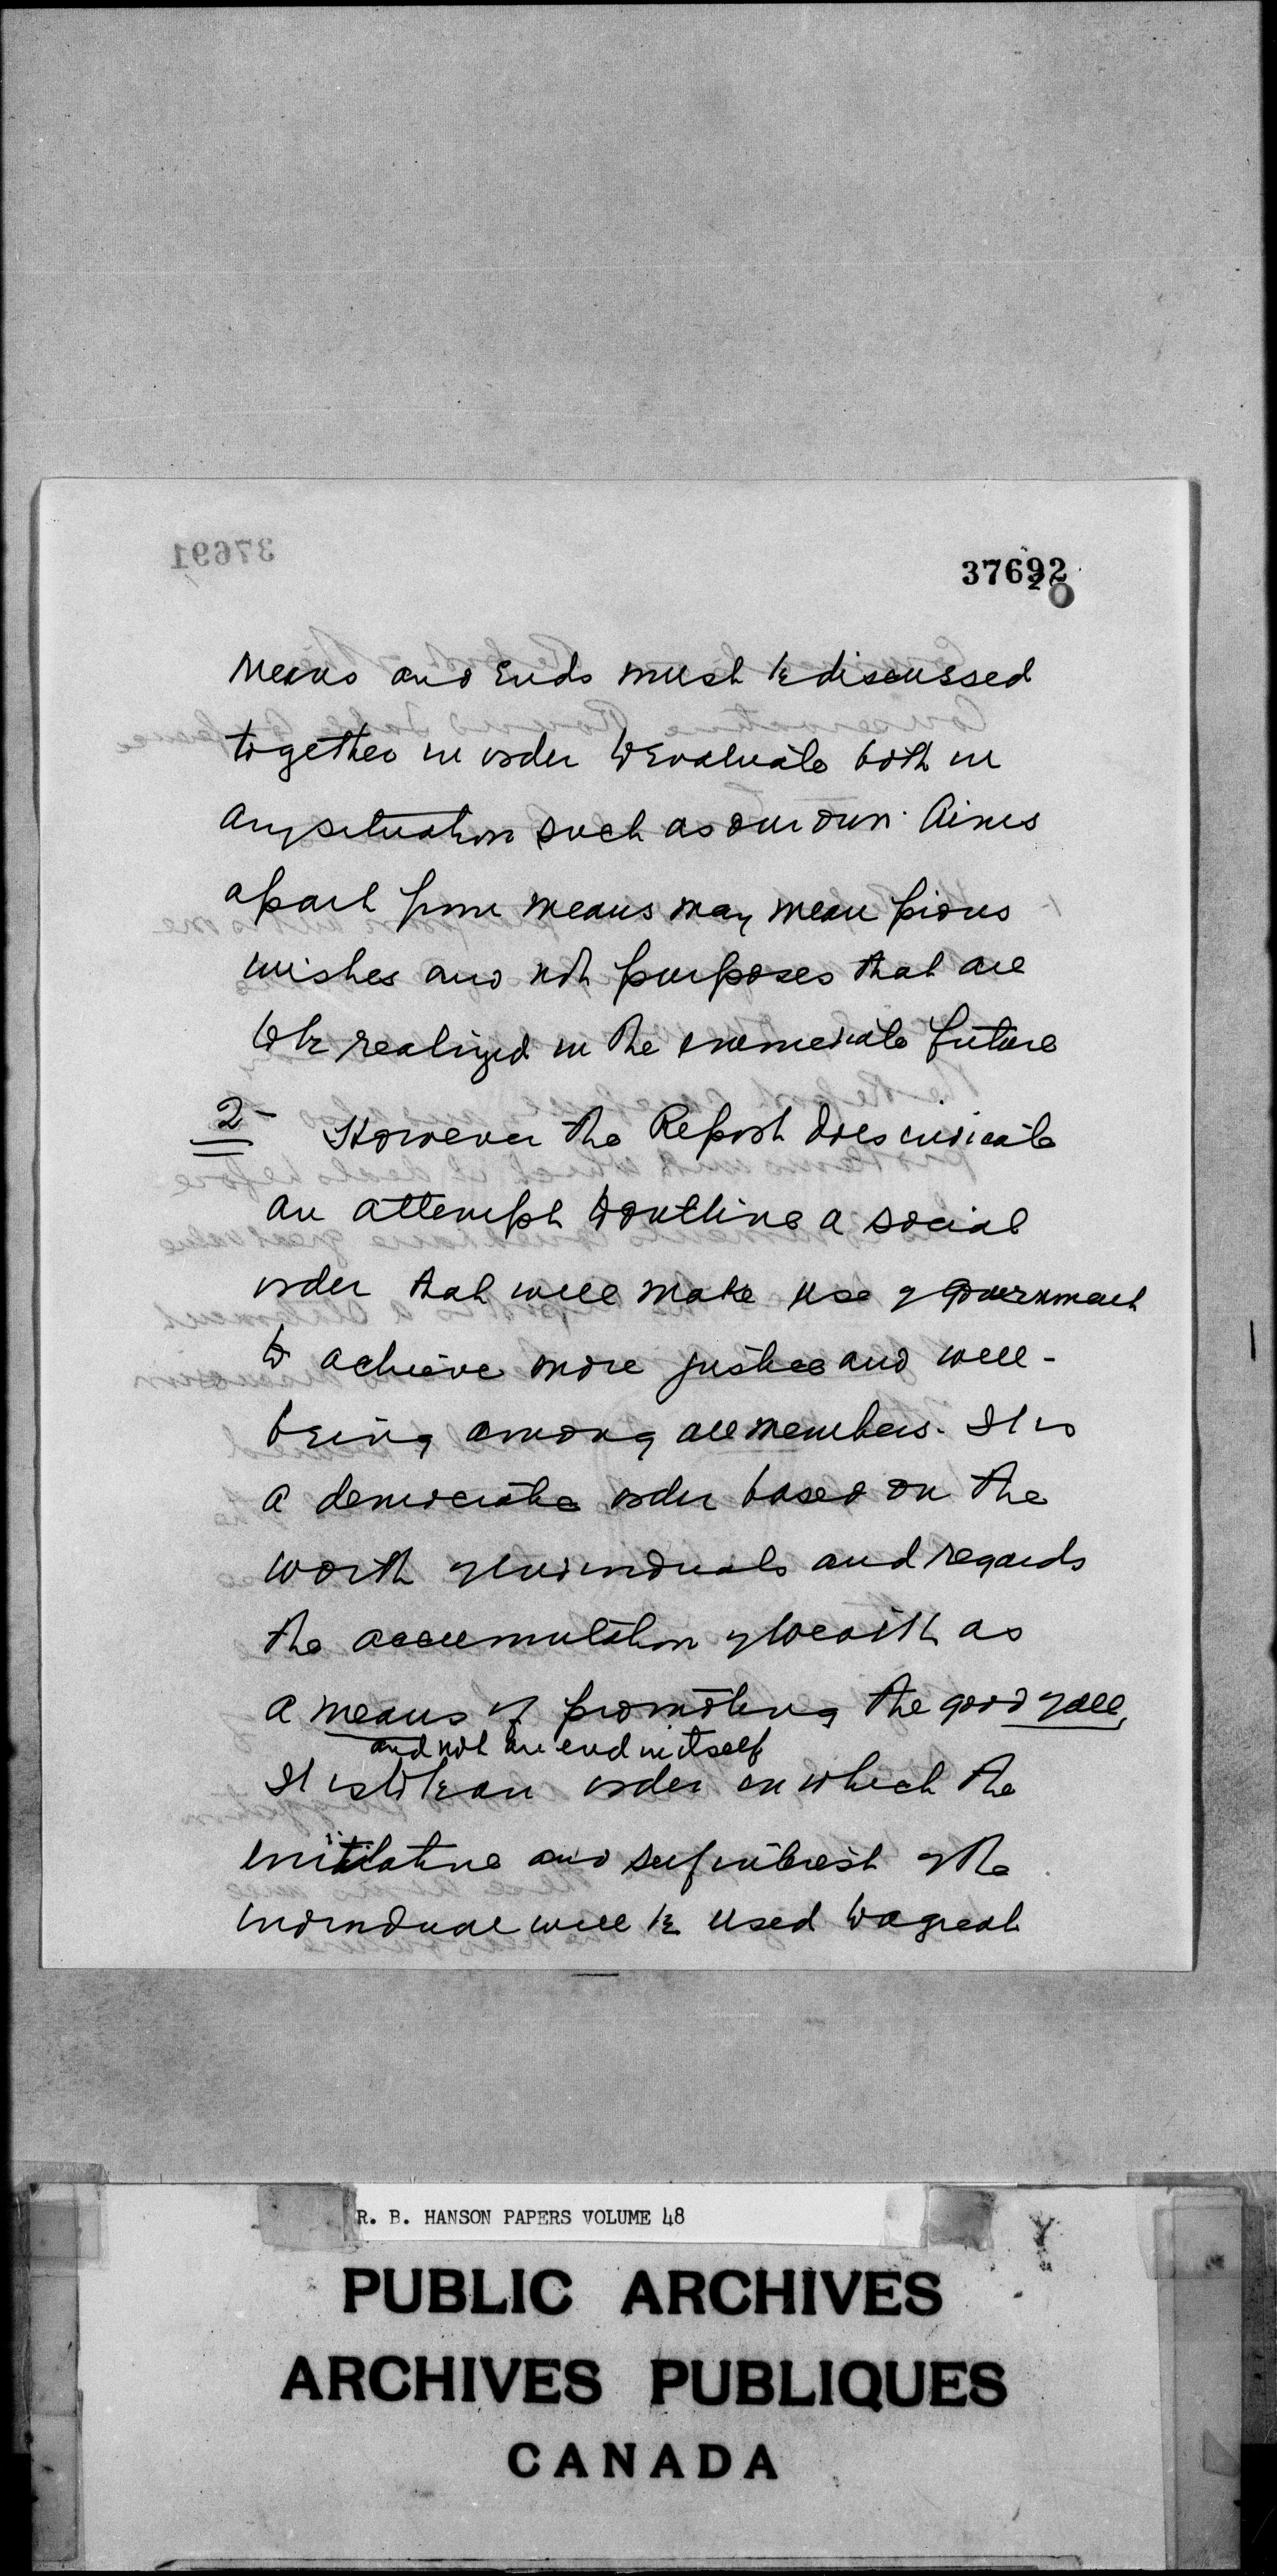 37691
37692
20
Means and Ends must be discussed
together in order to Evaluate both in
any situation such as our own. Aims
apart from means may mean pious
wishes and not purposes that are
to be realized in the immediate future
2- However the Report does indicate
an attempt to outline a social
order that will make use of government
to achieve more justice and well-
being among all members. It is
a democratic order based on the
worth of individuals and regards
the accumulation of wealth as
a means of promoting the good of all,
and not an end in itself
It is to be an order in which the
initiative and self interest of the
individual will be used to a great
R. B. HANSON PAPERS VOLUME 48
PUBLIC ARCHIVES
ARCHIVES PUBLIQUES
CANADA